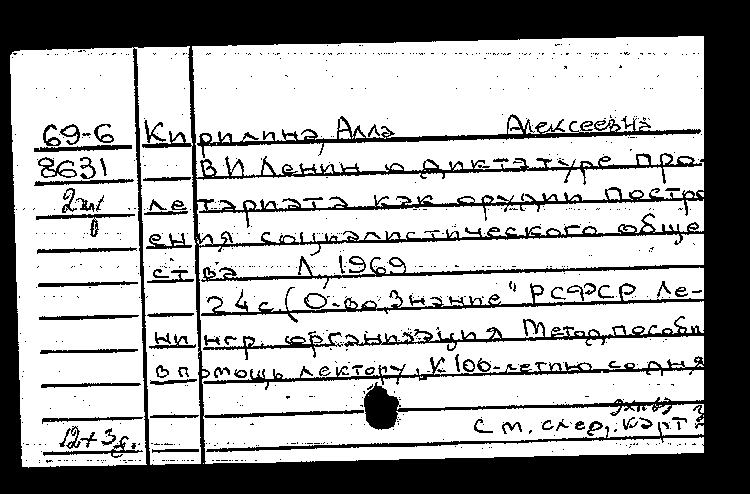 69-6 Кирилина, Алла Алексеевна
8631 В И Ленин о диктатуре про-
2 шт летариата как орудии постро
ения социалистического обще
ства Л., 1969
24 с (О-во „Знание" РСФСР Ле-
нингр. организация Метод, пособи
в помощь лектору. К 100-летию со дня
См. след. карт
12+3д.